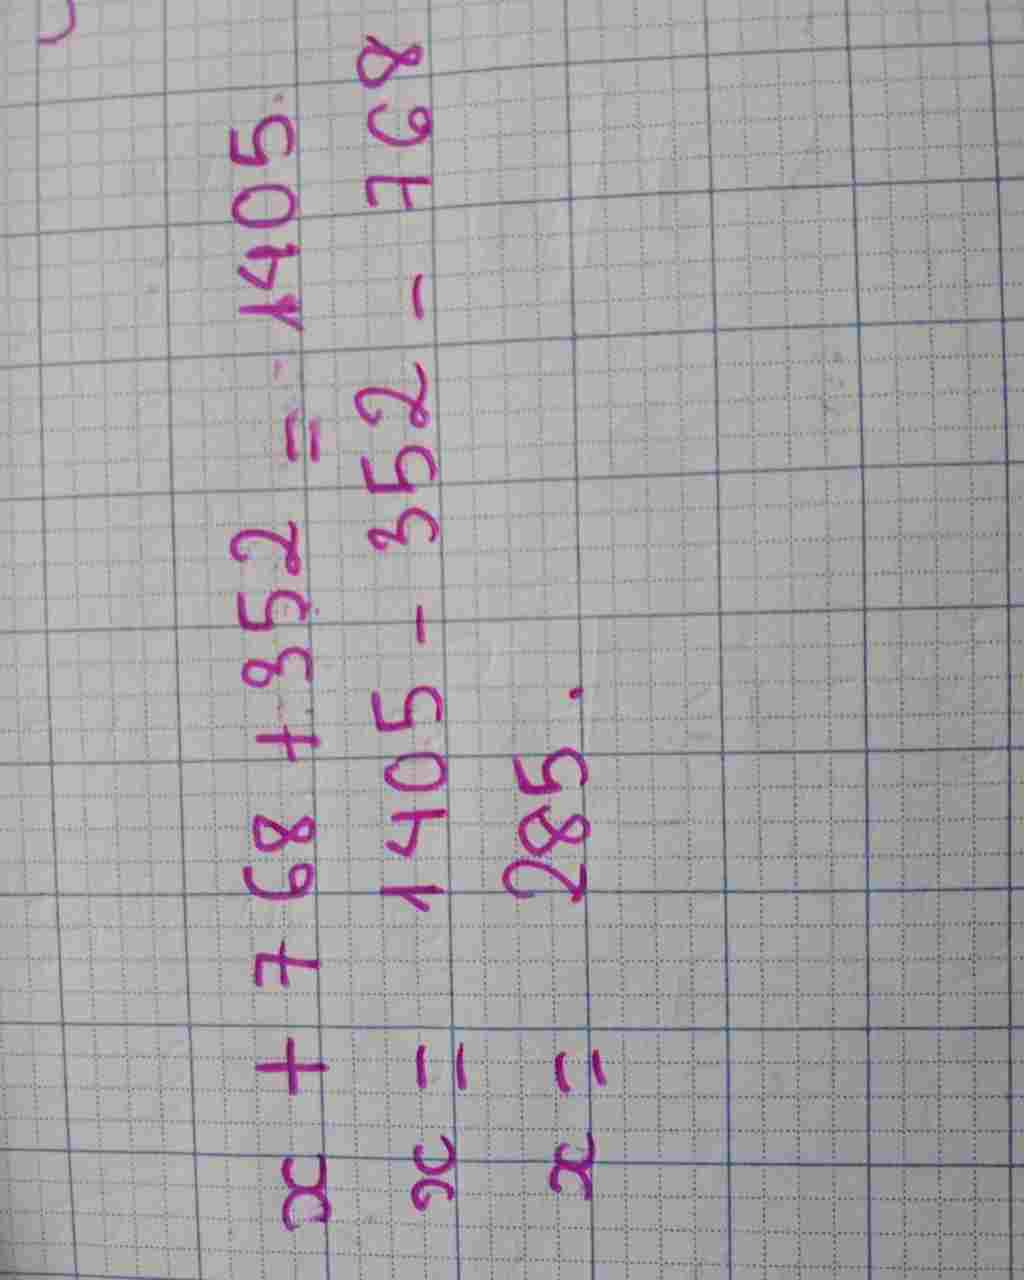 x + 768 + 352 = 1405
x = 1405 - 352 - 768
x = 285.